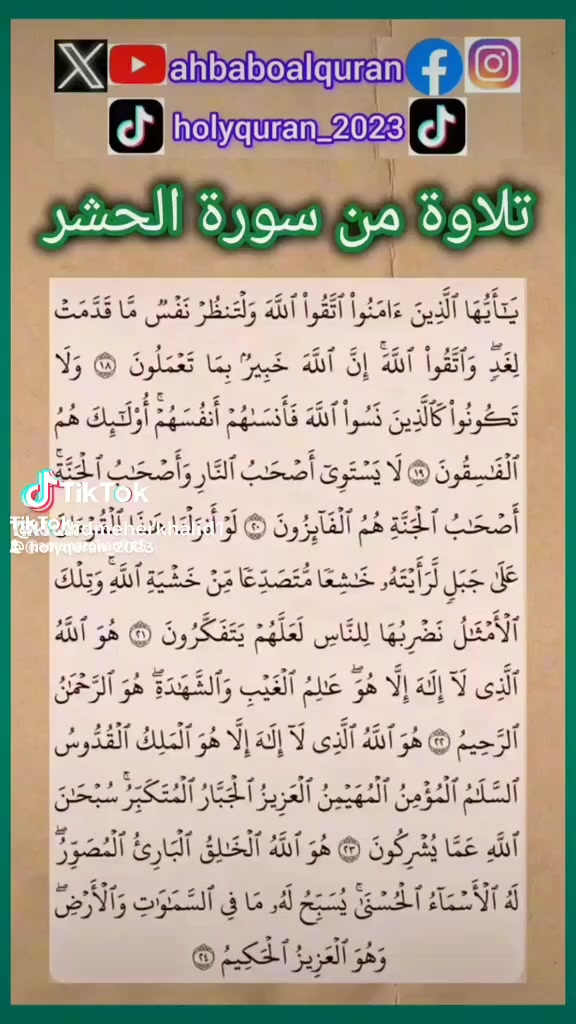 ahbaboalquran
holyquran_2023
تلاوة من سورة الحشر
يَٰٓأَيُّهَا ٱلَّذِينَ ءَامَنُواْ ٱتَّقُواْ ٱللَّهَ وَلۡتَنظُرۡ نَفۡسٞ مَّا قَدَّمَتۡ
لِغَدٖۖ وَٱتَّقُواْ ٱللَّهَۚ إِنَّ ٱللَّهَ خَبِيرُۢ بِمَا تَعۡمَلُونَ ١٨ وَلَا
تَكُونُواْ كَٱلَّذِينَ نَسُواْ ٱللَّهَ فَأَنسَىٰهُمۡ أَنفُسَهُمۡۚ أُوْلَٰٓئِكَ هُمُ
ٱلۡفَٰسِقُونَ ١٩ لَا يَسۡتَوِيٓ أَصۡحَٰبُ ٱلنَّارِ وَأَصۡحَٰبُ ٱلۡجَنَّةِۚ
TikTok
أَصۡحَٰبُ ٱلۡجَنَّةِ هُمُ ٱلۡفَآئِزُونَ ٢٠ لَوۡ أَنزَلۡنَا هَٰذَا ٱلۡقُرۡءَانَ
TikTok
holyquran_2023
عَلَىٰ جَبَلٖ لَّرَأَيۡتَهُۥ خَٰشِعٗا مُّتَصَدِّعٗا مِّنۡ خَشۡيَةِ ٱللَّهِۚ وَتِلۡكَ
ٱلۡأَمۡثَٰلُ نَضۡرِبُهَا لِلنَّاسِ لَعَلَّهُمۡ يَتَفَكَّرُونَ ٢١ هُوَ ٱللَّهُ
ٱلَّذِي لَآ إِلَٰهَ إِلَّا هُوَۖ عَٰلِمُ ٱلۡغَيۡبِ وَٱلشَّهَٰدَةِۖ هُوَ ٱلرَّحۡمَٰنُ
ٱلرَّحِيمُ ٢٢ هُوَ ٱللَّهُ ٱلَّذِي لَآ إِلَٰهَ إِلَّا هُوَ ٱلۡمَلِكُ ٱلۡقُدُّوسُ
ٱلسَّلَٰمُ ٱلۡمُؤۡمِنُ ٱلۡمُهَيۡمِنُ ٱلۡعَزِيزُ ٱلۡجَبَّارُ ٱلۡمُتَكَبِّرُۚ سُبۡحَٰنَ
ٱللَّهِ عَمَّا يُشۡرِكُونَ ٢٣ هُوَ ٱللَّهُ ٱلۡخَٰلِقُ ٱلۡبَارِئُ ٱلۡمُصَوِّرُۖ
لَهُ ٱلۡأَسۡمَآءُ ٱلۡحُسۡنَىٰۚ يُسَبِّحُ لَهُۥ مَا فِي ٱلسَّمَٰوَٰتِ وَٱلۡأَرۡضِۖ
وَهُوَ ٱلۡعَزِيزُ ٱلۡحَكِيمُ ٢٤